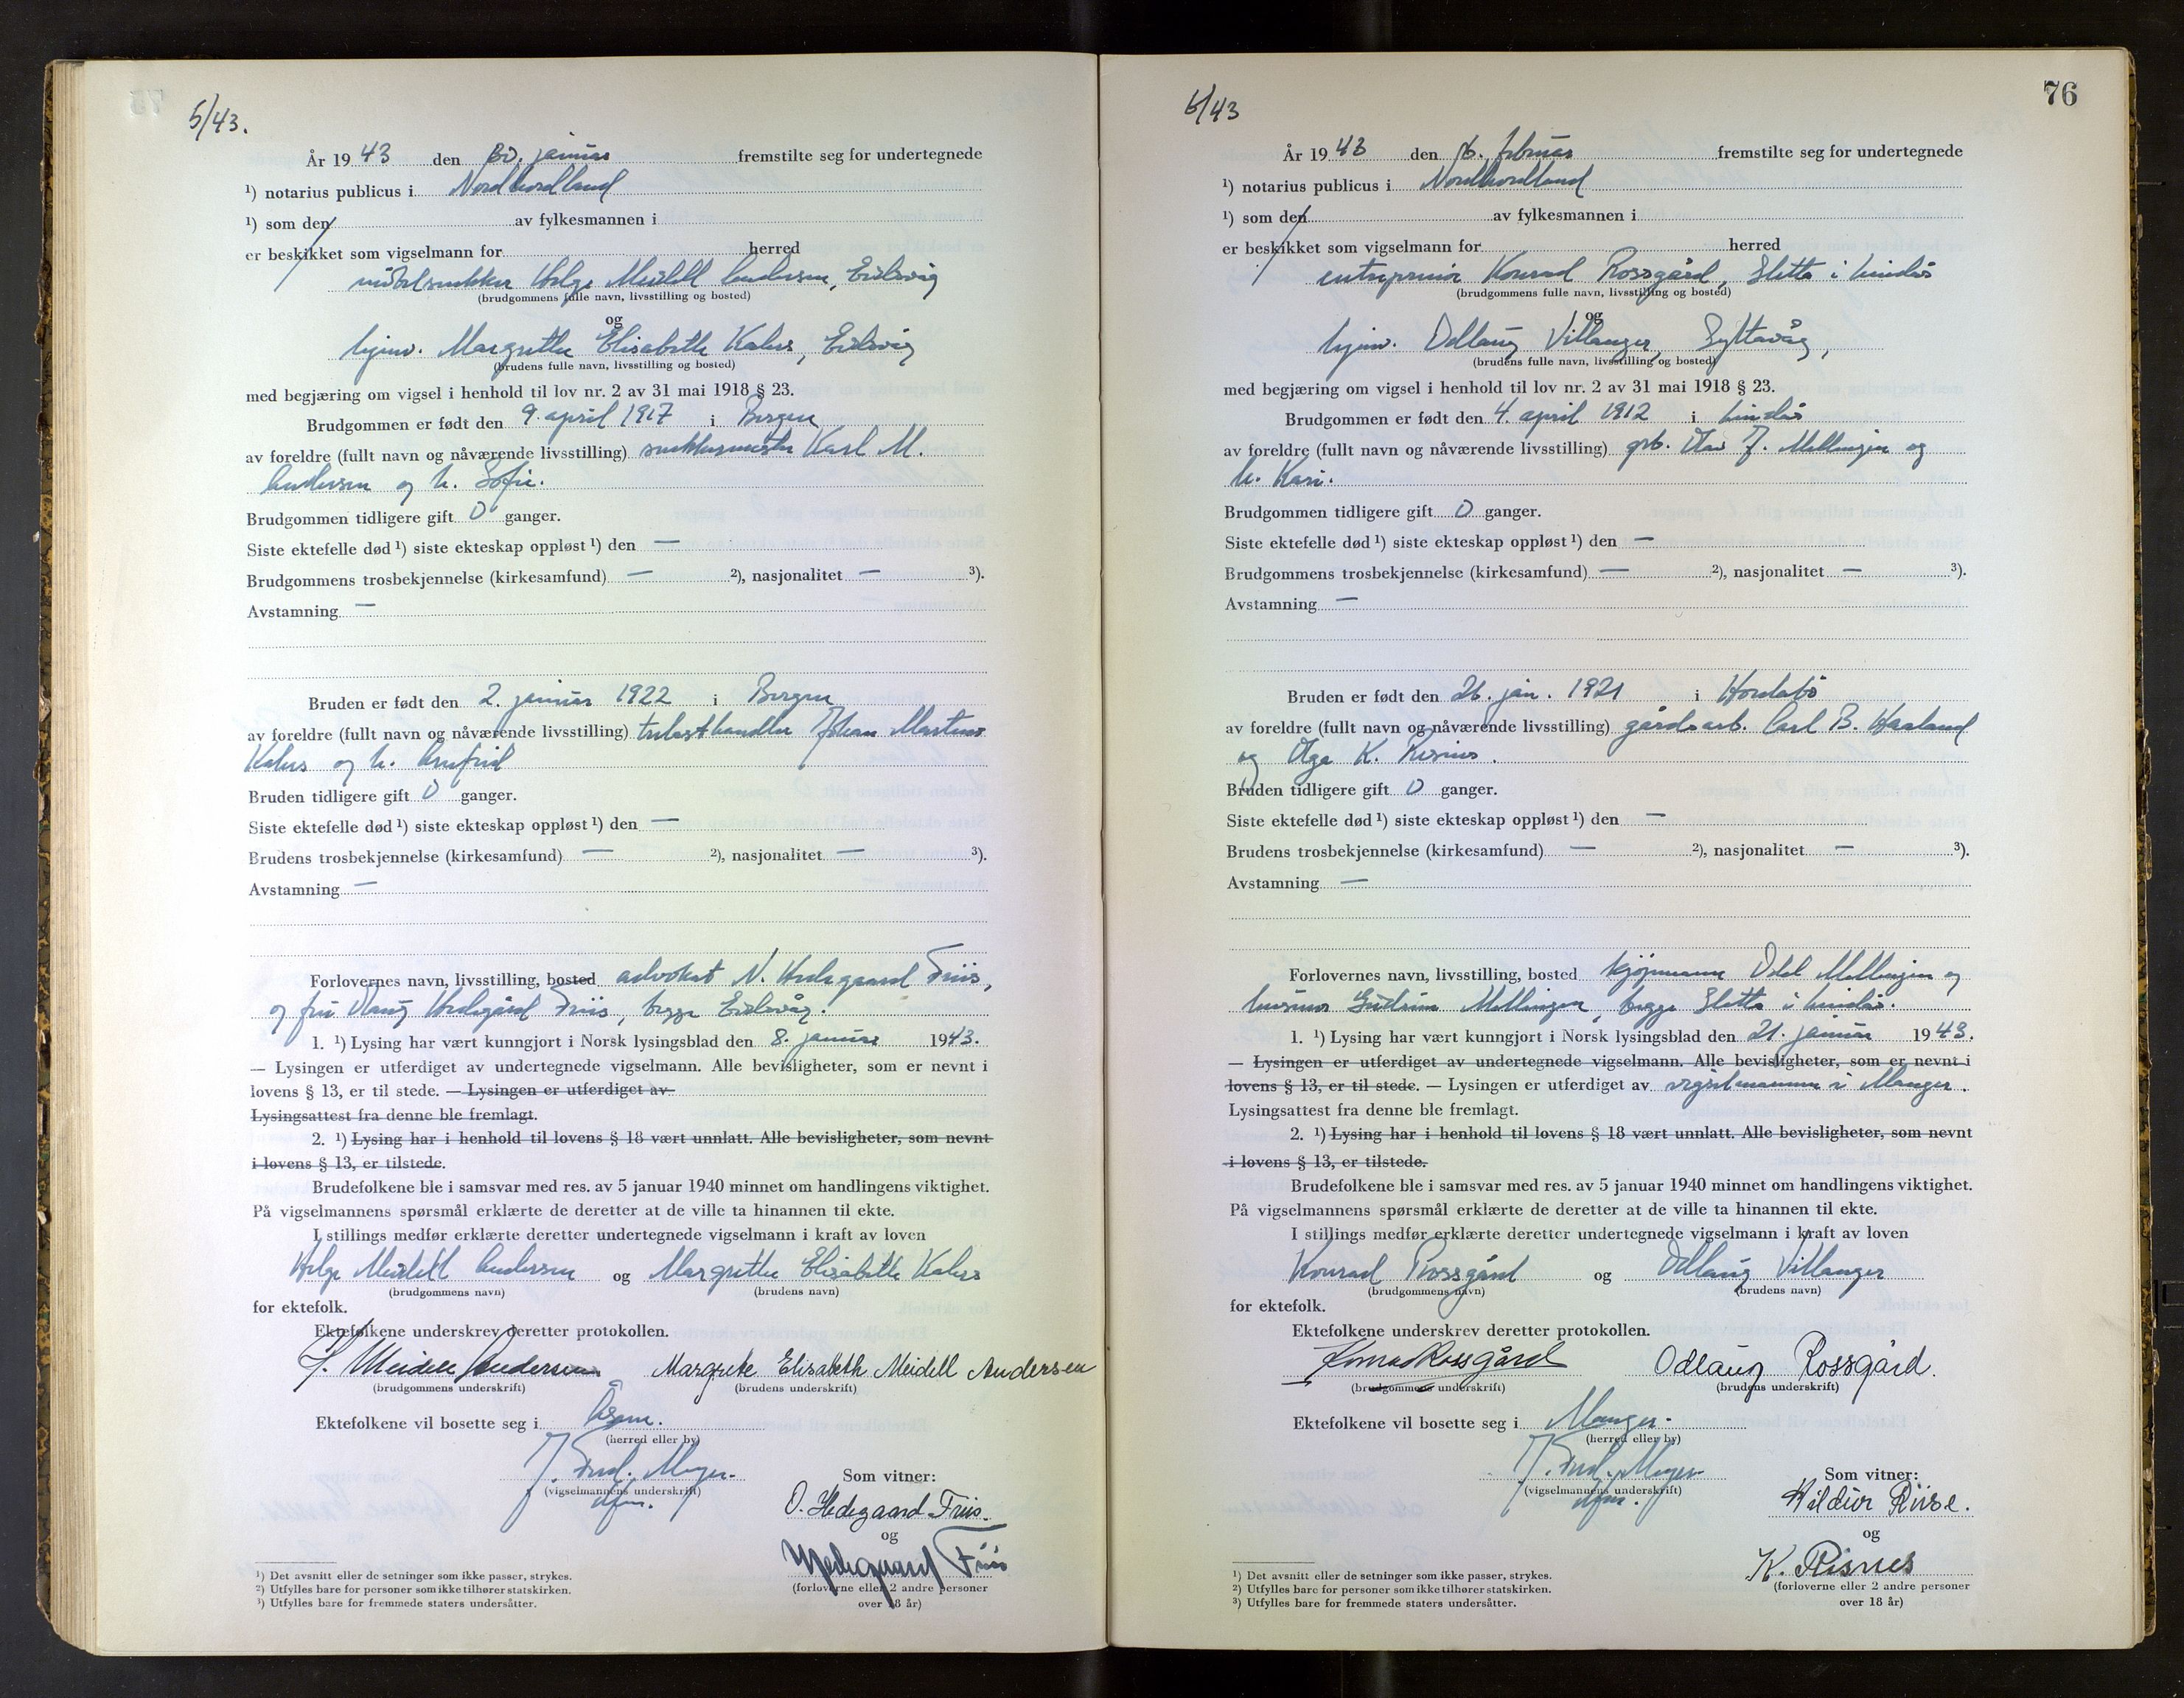 5/43.
År 1943 den 30. januar fremstilte seg for undertegnede
¹) notarius publicus i Nordhordland
¹) som den av fylkesmannen i
er beskikket som vigselmann for herred
møbelsnekker Helge Meidell Andersen, Eidsvåg
(brudgommens fulle navn, livsstilling og bosted)
og
hjemv. Margrethe Elisabeth Kahrs, Eidsvåg
(brudens fulle navn, livsstilling og bosted)
med begjæring om vigsel i henhold til lov nr. 2 av 31 mai 1918 § 23.
Brudgommen er født den 9. april 1917 i Bergen
av foreldre (fullt navn og nåværende livsstilling) snekkermester Karl M.
Andersen og h. Sofie.
Brudgommen tidligere gift 0 ganger.
Siste ektefelle død ¹) siste ekteskap oppløst ¹) den —
Brudgommens trosbekjennelse (kirkesamfund) — ²), nasjonalitet — ³).
Avstamning —
Bruden er født den 2. januar 1922 i Bergen
av foreldre (fullt navn og nåværende livsstilling) trelasthandler Johan Martens
Kahrs og h. Arnfrid
Bruden tidligere gift 0 ganger.
Siste ektefelle død ¹) siste ekteskap oppløst ¹) den —
Brudens trosbekjennelse (kirkesamfund) — ²), nasjonalitet — ³).
Avstamning —
Forlovernes navn, livsstilling, bosted advokat N. Hedegaard Friis,
og fru Olaug Hedegård Friis, begge Eidsvåg.
1. ¹) Lysing har vært kunngjort i Norsk lysingsblad den 8. januar 1943.
— Lysingen er utferdiget av undertegnede vigselmann. Alle bevisligheter, som er nevnt i
lovens § 13, er til stede. — Lysingen er utferdiget av
Lysingsattest fra denne ble fremlagt.
2. ¹) Lysing har i henhold til lovens § 18 vært unnlatt. Alle bevisligheter, som nevnt
i lovens § 13, er tilstede.
Brudefolkene ble i samsvar med res. av 5 januar 1940 minnet om handlingens viktighet.
På vigselmannens spørsmål erklærte de deretter at de ville ta hinannen til ekte.
I stillings medfør erklærte deretter undertegnede vigselmann i kraft av loven
Helge Meidell Andersen og Margrethe Elisabeth Kahrs
(brudgommens navn) (brudens navn)
for ektefolk.
Ektefolkene underskrev deretter protokollen.
H. Meidell Andersen Margrete Elisabeth Meidell Andersen
(brudgommens underskrift) (brudens underskrift)
Ektefolkene vil bosette seg i Åsane.
(herred eller by)
J. Fred. Meyer.
(vigselmannens underskrift)
Som vitner:
O. Hedegaard Friis.
og
N Hedegaard Friis
(forloverne eller 2 andre personer
over 18 år)
¹) Det avsnitt eller de setninger som ikke passer, strykes.
²) Utfylles bare for personer som ikke tilhører statskirken.
³) Utfylles bare for fremmede staters undersåtter.
76
6/43
År 1943 den 16. februar fremstilte seg for undertegnede
¹) notarius publicus i Nordhordland
¹) som den av fylkesmannen i
er beskikket som vigselmann for herred
entreprenør Konrad Rossgård, Sletta i Lindås
(brudgommens fulle navn, livsstilling og bosted)
og
hjemv. Odlaug Villanger, Syltavåg,
(brudens fulle navn, livsstilling og bosted)
med begjæring om vigsel i henhold til lov nr. 2 av 31 mai 1918 § 23.
Brudgommen er født den 4. april 1912 i Lindås
av foreldre (fullt navn og nåværende livsstilling) grb. Olav J. Mellingen og
h. Kari.
Brudgommen tidligere gift 0 ganger.
Siste ektefelle død ¹) siste ekteskap oppløst ¹) den —
Brudgommens trosbekjennelse (kirkesamfund) — ²), nasjonalitet — ³).
Avstamning —
Bruden er født den 26. jan. 1921 i Hordabø
av foreldre (fullt navn og nåværende livsstilling) gårdsarb. Carl B. Haaland
og Olga K. Risnes.
Bruden tidligere gift 0 ganger.
Siste ektefelle død ¹) siste ekteskap oppløst ¹) den —
Brudens trosbekjennelse (kirkesamfund) — ²), nasjonalitet — ³).
Avstamning —
Forlovernes navn, livsstilling, bosted kjøpmann Odd Mellingen og
husmor Gudrun Mellingen, begge Sletta i Lindås.
1. ¹) Lysing har vært kunngjort i Norsk lysingsblad den 21. januar 1943.
— Lysingen er utferdiget av undertegnede vigselmann. Alle bevisligheter, som er nevnt i
lovens § 13, er til stede. — Lysingen er utferdiget av vigselmannen i Manger.
Lysingsattest fra denne ble fremlagt.
2. ¹) Lysing har i henhold til lovens § 18 vært unnlatt. Alle bevisligheter, som nevnt
i lovens § 13, er tilstede.
Brudefolkene ble i samsvar med res. av 5 januar 1940 minnet om handlingens viktighet.
På vigselmannens spørsmål erklærte de deretter at de ville ta hinannen til ekte.
I stillings medfør erklærte deretter undertegnede vigselmann i kraft av loven
Konrad Rossgård og Odlaug Villanger
(brudgommens navn) (brudens navn)
for ektefolk.
Ektefolkene underskrev deretter protokollen.
Konrad Rossgård Odlaug Rossgård.
(brudgommens underskrift) (brudens underskrift)
Ektefolkene vil bosette seg i Manger.
(herred eller by)
J. Fred. Meyer
(vigselmannens underskrift)
Som vitner:
Hildur Riise.
og
K. Risnes
(forloverne eller 2 andre personer
over 18 år)
¹) Det avsnitt eller de setninger som ikke passer, strykes.
²) Utfylles bare for personer som ikke tilhører statskirken.
³) Utfylles bare for fremmede staters undersåtter.